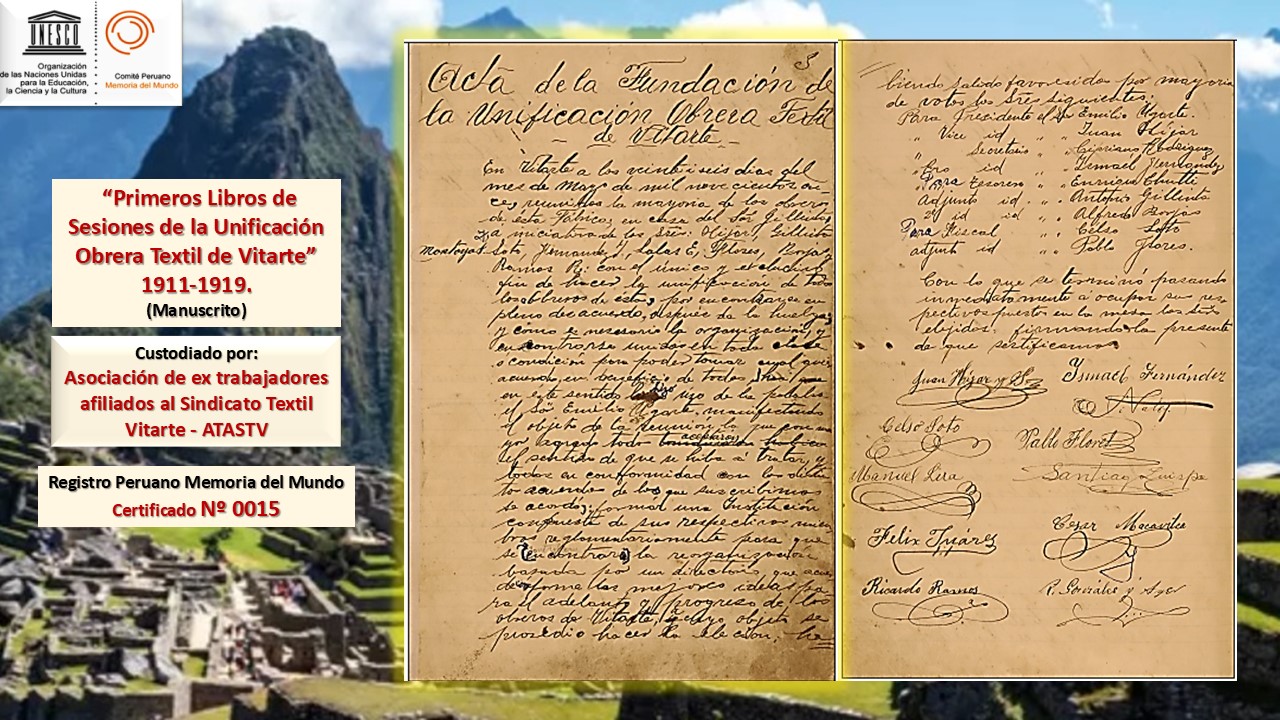 UNESCO
Organización
de las Naciones Unidas
para la Educación,
la Ciencia y la Cultura
Comité Peruano
Memoria del Mundo
“Primeros Libros de
Sesiones de la Unificación
Obrera Textil de Vitarte”
1911-1919.
(Manuscrito)
Custodiado por:
Asociación de ex trabajadores
afiliados al Sindicato Textil
Vitarte - ATASTV
Registro Peruano Memoria del Mundo
Certificado Nº 0015
3
Acta de la Fundación de
la Unificación Obrera Textil
de Vitarte
En Vitarte a los veinte i seis dias del
mes de Mayo de mil novecientos on-
ce, reunidos la mayoria de los obreros
de esta Fábrica, en casa del Sor
a iniciativa de los Sres.
Soto, Salas E, Flores, Borjas
Ramos R; con el único y
fin de hacer la unificacion de todos
los obreros de esta, por encontrarse en
pleno de acuerdo, después de la huelga
y como es necesario la organizacion, y
encontrarse unidos en toda clase
o condición para poder tomar
acuerdo en beneficio de todos
en este sentido uso de la palabra
el Sor Emilio Ugarte, manifestando
el objeto de la reunion
todo aceptaron
el sentido de que se iba á tratar, y
todos en conformidad con los
acuerdo de los que suscribimos
se acordó; formar una Institución
compuesta de sus respectivos miem
bros reglamentariamente para que
se encontrara la reorganización
basada por un directorio que
las mejores ideas pa
ra el adelanto y progreso de los
obreros de Vitarte, cuyo objeto se
procedio hacer la eleccion, ha
biendo salido favorecidos por mayoria
de votos los Sres siguientes.
Para Presidente el Sr Emilio Ugarte.
" Vice id " " Juan Híjar
" Secretario " " Cipriano Rodriguez
" Pro id " " Ismael Fernandez
" Para Tesorero " " Enrique
Adjunto id " " Antonio
2º id id " " Alfredo Borjas
Para Fiscal " Celso Soto
adjunt id " Pablo Flores.
Con lo que se terminó pasando
inmediatamente á ocupar sus res
pectivos puestos en la mesa los Sres
elejidos, firmando la presente
de que sertificamos
Juan Híjar y
Ismael Fernández
Celso Soto
Pablo Flores
Manuel Lira
Santiago Quispe
Felix
Cesar
Ricardo Ramos